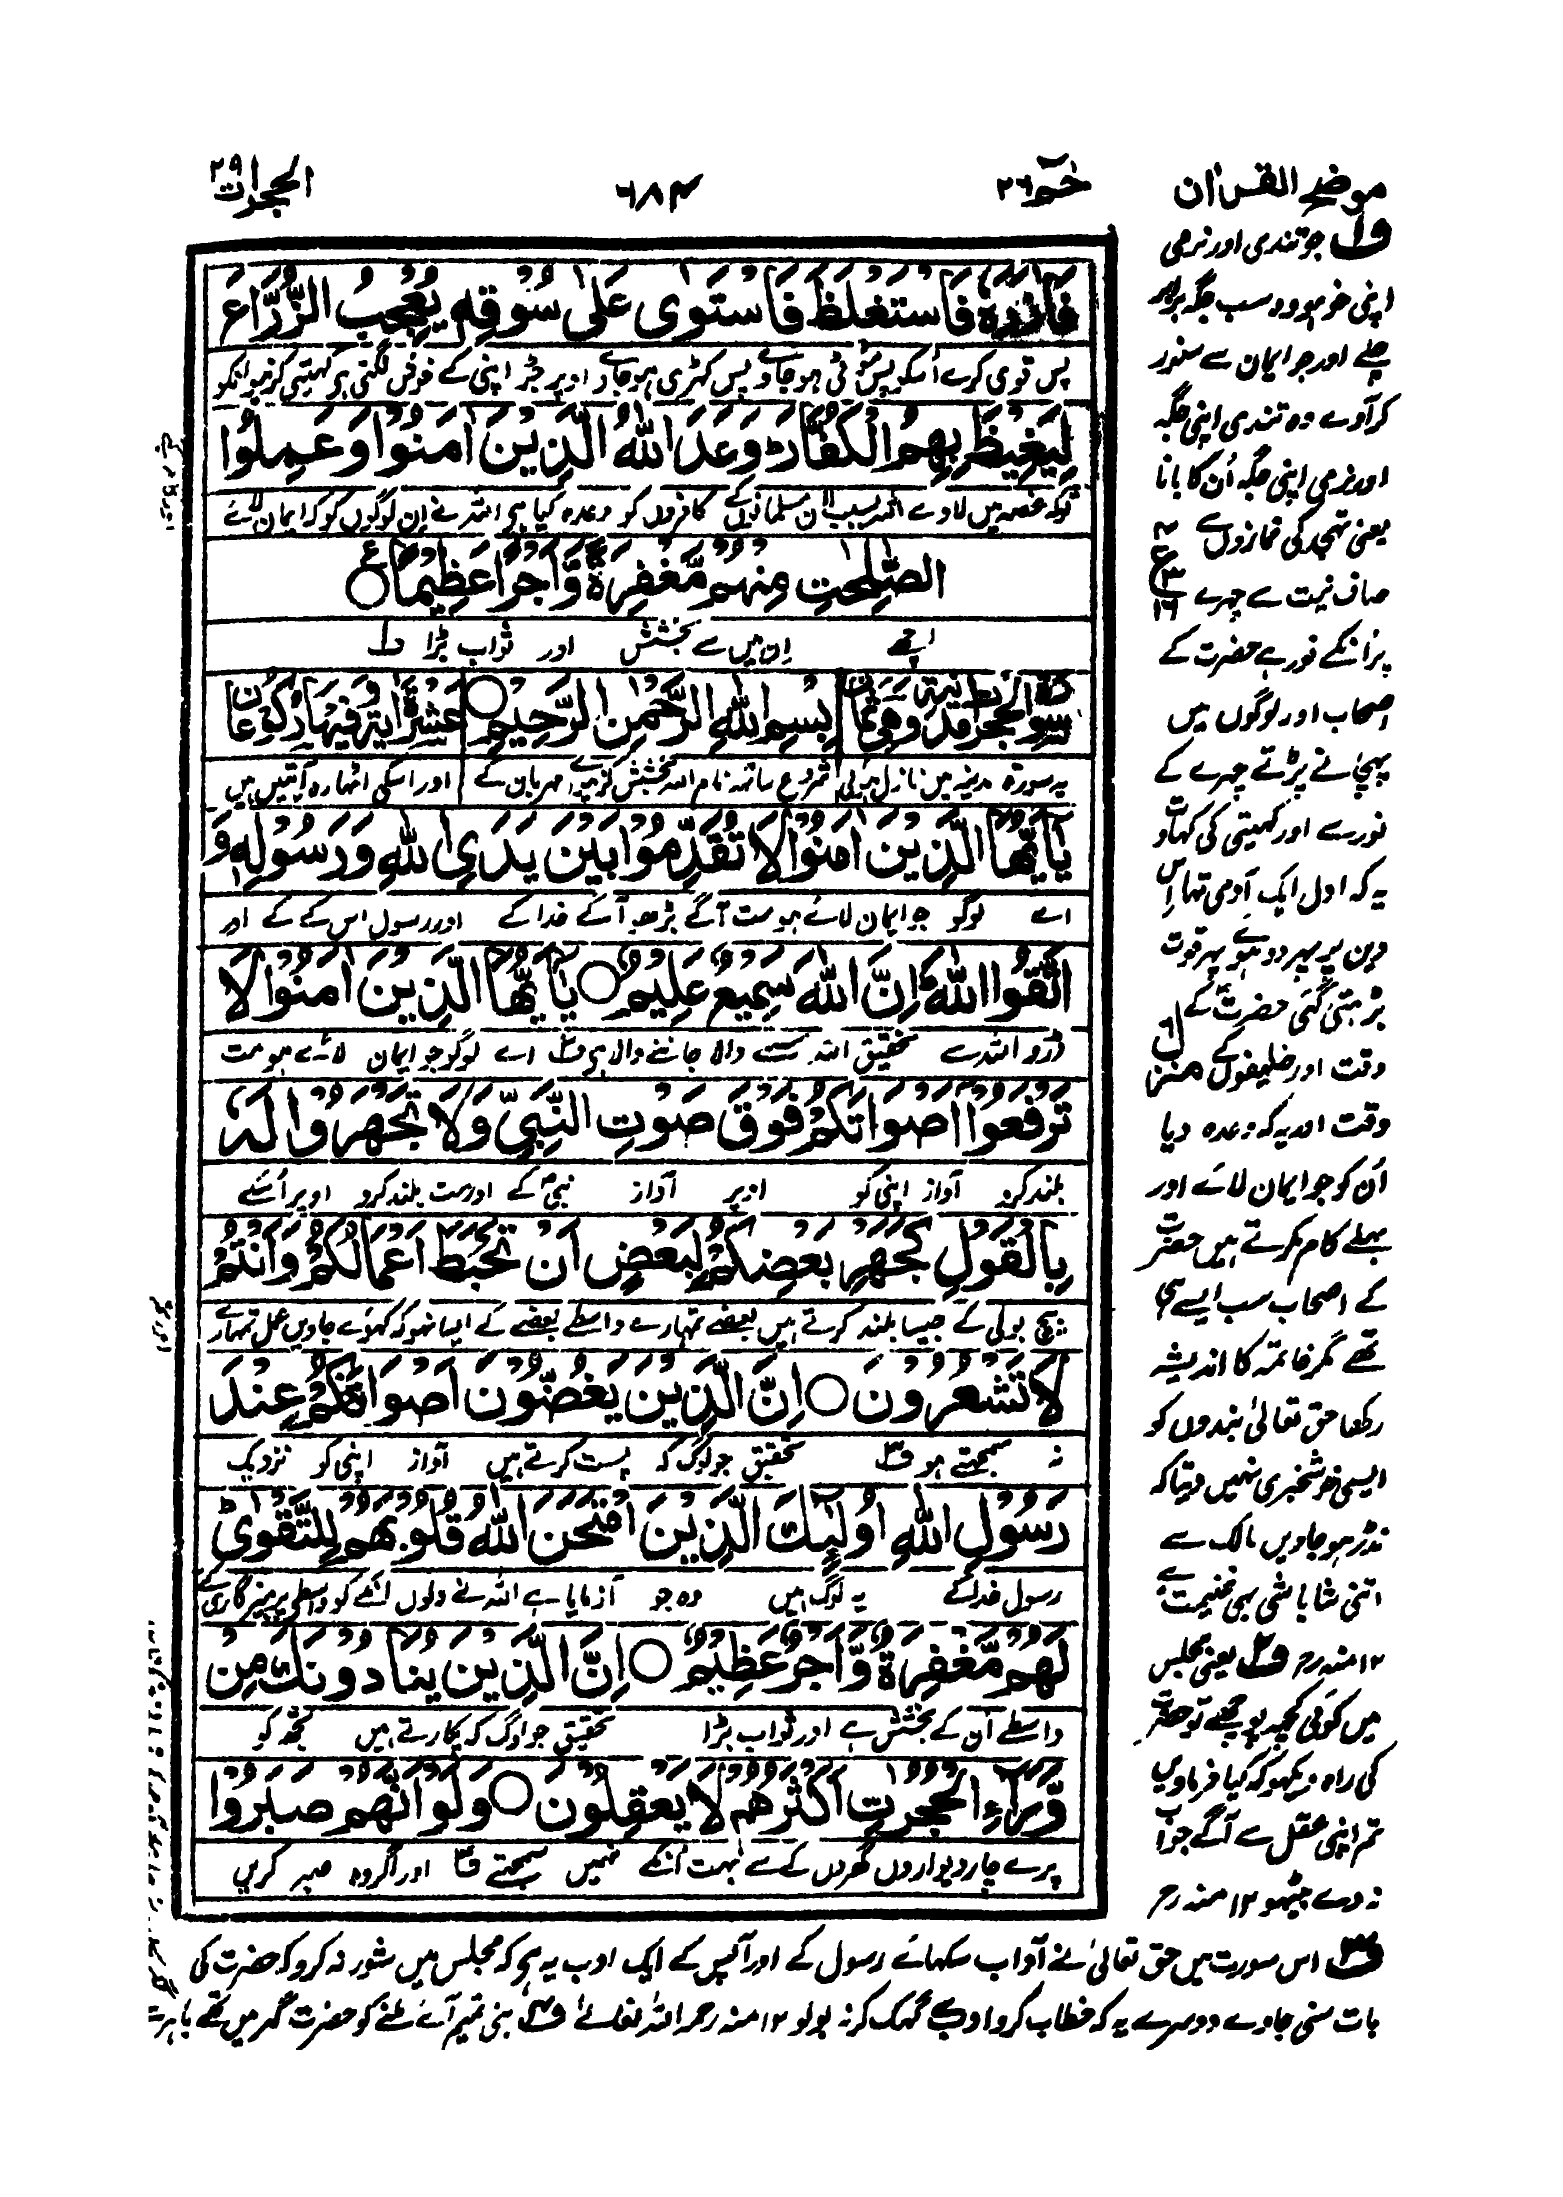 موضح القرآن
حٰم ٢٦
٦٨٤
الحجرات ٤٩
فَاٰزَرَهٗ فَاسْتَغْلَظَ فَاسْتَوٰى عَلٰى سُوْقِهٖ يُعْجِبُ الزُّرَّاعَ
پس قوی کرے اُسکو پس موٹی ہوجاوے پس کھڑی ہوجاوے اوپر جڑ اپنی کے خوش لگتی ہے کھیتی کرنیوالونکو
لِيَغِيْظَ بِهِمُ الْكُفَّارَ ؕ وَعَدَ اللّٰهُ الَّذِيْنَ اٰمَنُوْا وَعَمِلُوا
توکہ غصہ میں لاوے اللہ بسبب ان مسلمانوں کے کافروں کو وعدہ کیا ہے اللہ نے اِن لوگوں کو کہ ایمان لائے
الصّٰلِحٰتِ مِنْهُمْ مَّغْفِرَةً وَّاَجْرًا عَظِيْمًا ○ ع
اچھے اِن میں سے بخشش اور ثواب بڑا ف۱
بِسْمِ اللّٰهِ الرَّحْمٰنِ الرَّحِيْمِ ○
یہ سورۃ مدینہ میں نازل ہوئی شروع ساتھ نام اللہ بخشش کرنیوالے مہربان کے اور اسکی اٹھارہ آیتیں ہیں
يٰۤاَيُّهَا الَّذِيْنَ اٰمَنُوْا لَا تُقَدِّمُوْا بَيْنَ يَدَيِ اللّٰهِ وَرَسُوْلِهٖ وَ
اے لوگو جو ایمان لائے ہو مت آگے بڑھو آگے خدا کے اور رسول اس کے کے اور
اتَّقُوا اللّٰهَ ؕ اِنَّ اللّٰهَ سَمِيْعٌ عَلِيْمٌ ○ يٰۤاَيُّهَا الَّذِيْنَ اٰمَنُوْا لَا
ڈرو اللہ سے تحقیق اللہ سننے والا جاننے والا ہے ف۲ اے لوگو جو ایمان لائے ہو مت
تَرْفَعُوْۤا اَصْوَاتَكُمْ فَوْقَ صَوْتِ النَّبِيِّ وَلَا تَجْهَرُوْا لَهٗ
بلند کرو آواز اپنی کو اوپر آواز نبیؐ کے اور مت بلند کرو اوپر اُسکے
بِالْقَوْلِ كَجَهْرِ بَعْضِكُمْ لِبَعْضٍ اَنْ تَحْبَطَ اَعْمَالُكُمْ وَاَنْتُمْ
بیچ بولی کے جیسا بلند کرتے ہیں بعضے تمہارے واسطے بعضے کے ایسا نہو کہ کھوئے جاویں عمل تمہارے
لَا تَشْعُرُوْنَ ○ اِنَّ الَّذِيْنَ يَغُضُّوْنَ اَصْوَاتَهُمْ عِنْدَ
نہ سمجھتے ہو ف۳ تحقیق جو لوگ کہ پست کرتے ہیں آواز اپنی کو نزدیک
رَسُوْلِ اللّٰهِ اُولٰٓئِكَ الَّذِيْنَ امْتَحَنَ اللّٰهُ قُلُوْبَهُمْ لِلتَّقْوٰى ؕ
رسول خدا کے یہ لوگ ہیں وہ جو آزمایا ہے اللہ نے دلوں اُنکے کو واسطے پرہیزگاری کے
لَهُمْ مَّغْفِرَةٌ وَّاَجْرٌ عَظِيْمٌ ○ اِنَّ الَّذِيْنَ يُنَادُوْنَكَ مِنْ
واسطے اُن کے بخشش ہے اور ثواب بڑا تحقیق جو لوگ کہ پکارتے ہیں تجھ کو
وَّرَآءِ الْحُجُرٰتِ اَكْثَرُهُمْ لَا يَعْقِلُوْنَ ○ وَلَوْ اَنَّهُمْ صَبَرُوْا
پرے چار دیواروں گھروں کے سے بہت اُنکے نہیں سمجھتے ف۴ اور اگر وہ صبر کریں
ف۱ جو تندی اور نرمی
اپنی خو ہو وہ سب جگہ برابر
چلے اور جو ایمان سے سنور
کر آوے وہ تندی اپنی جگہ
اور نرمی اپنی جگہ اُن کا بانا
یعنی تہجد کی نمازوں سے
صاف نیت سے چہرے
پر اُنکے نور ہے حضرت کے
اصحاب اور لوگوں میں
پہچانے پڑتے چہرے کے
نور سے اور کھیتی کی کہاوت
یہ کہ اول ایک آدمی تھا اس
دین پر پھر دو ہوئے پھر قوت
بڑھتی گئی حضرتؐ کے
وقت اور خلیفوں کے
وقت اور یہ کہ وعدہ دیا
اُن کو جو ایمان لائے اور
بھلے کام کرتے ہیں حضرت
کے اصحاب سب ایسے ہی
تھے مگر خاتمہ کا اندیشہ
رکھا حق تعالیٰ بندوں کو
ایسی خوشخبری نہیں دیتا کہ
نڈر ہوجاویں مالک سے
اتنی شاباشی بھی غنیمت ہے
۱۲ منہ رح ف۲ یعنی مجلس
میں کوئی کچھ پوچھے تو حضرت
کی راہ دیکھو کہ کیا فرماویں
تم اپنی عقل سے آگے جواب
نہ دے بیٹھو ۱۲ منہ رح
ف۳ اس سورت میں حق تعالیٰ نے آداب سکھائے رسول کے اور آپس کے ایک ادب یہ ہے کہ مجلس میں شور نہ کرو کہ حضرت کی
بات سنی جاوے دوسرے یہ کہ خطاب کرو ادب سے گھمک کر نہ بولو ۱۲ منہ رحمہ اللہ تعالیٰ ف۴ بنی تمیم آئے ملنے کو حضرت گھر میں تھے باہر سے